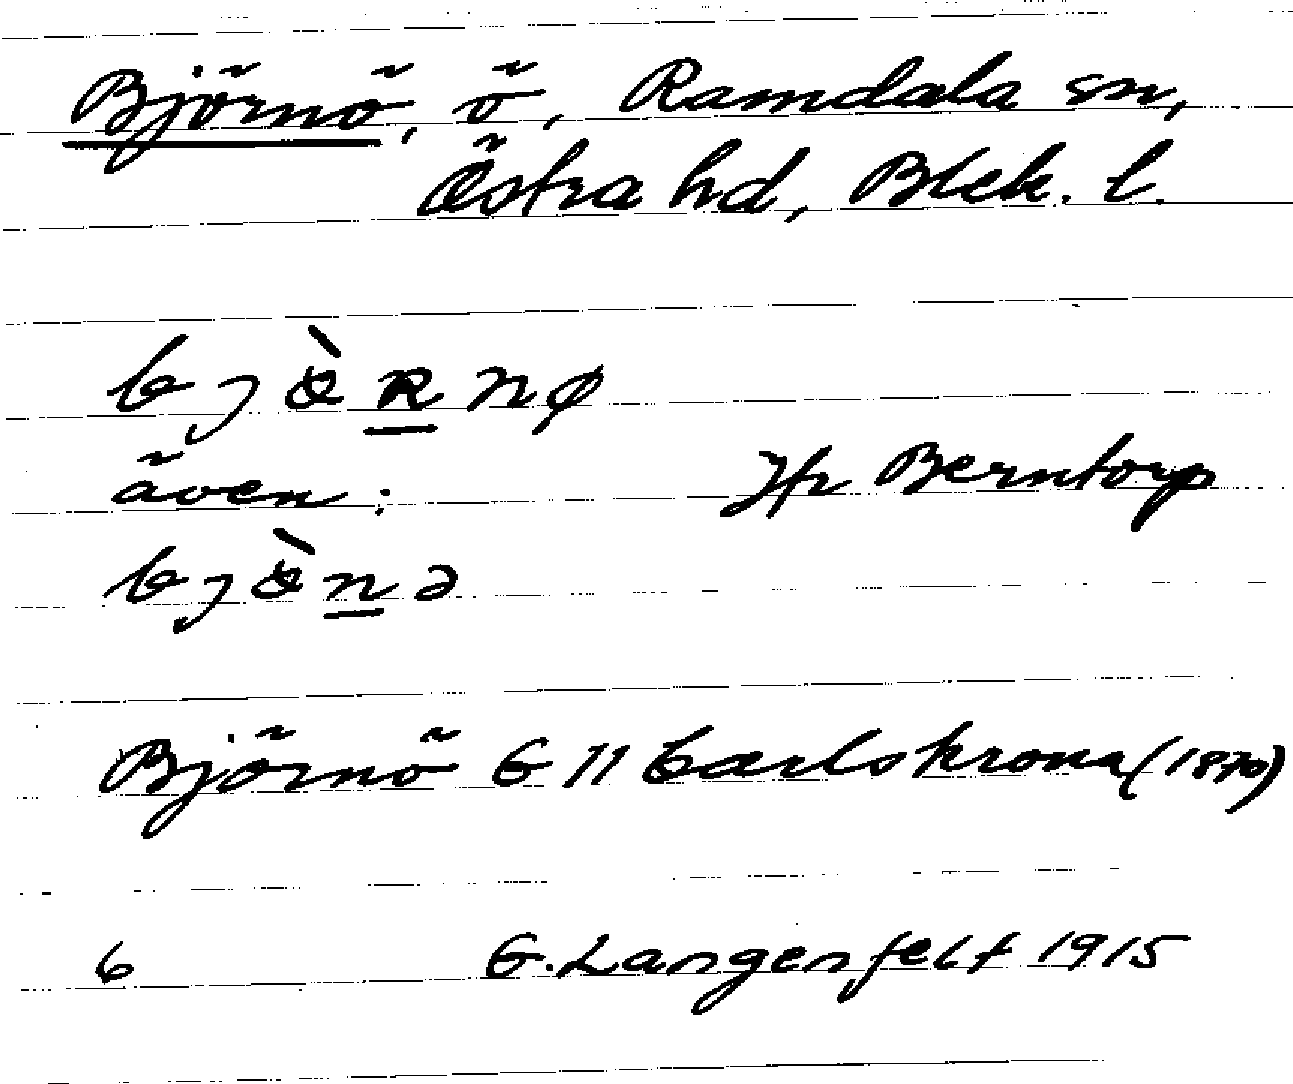 Björnö, ö, Ramdala sn,
Östra hd, Blek. l.
även: Jfr Berntorp
Björnö G 11 Carlskrona (1870)
6 G. Langenfelt 1915